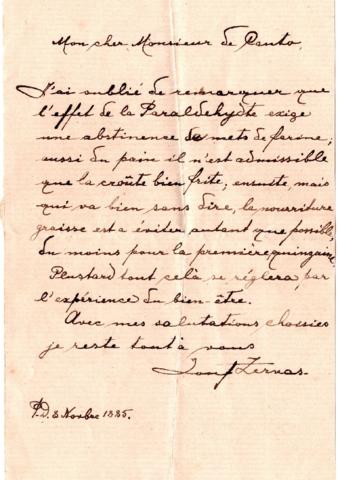 Mon cher Monsieur de Canto,
J'ai oublié de remarquer que
l'effet de la Paraldehydte exige
une abstinence de mets de farine;
aussi du paine il n'est admissible
que la croûte bien frite; ensuite, mais
qui va bien sans dire, la nourriture
graisse est a éviter autant que possible,
du moins pour la première quinzaine
Plustard tout celà se réglera par
l'expérience du bien-être.
Avec mes salutations choisies
je reste tout à vous
Zervas.
P.D. 8 Novbre 1885.